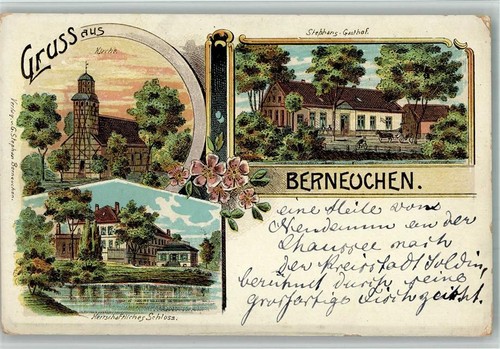 Gruss aus
Kirche.
Stephans-Gasthof.
Verlag v. G. Stephan Berneuchen.
BERNEUCHEN.
Herrschaftliches Schloss.
eine Meile von
Neudamm an der
Chaussee nach
der Kreisstadt Soldin,
berühmt durch seine
großartige